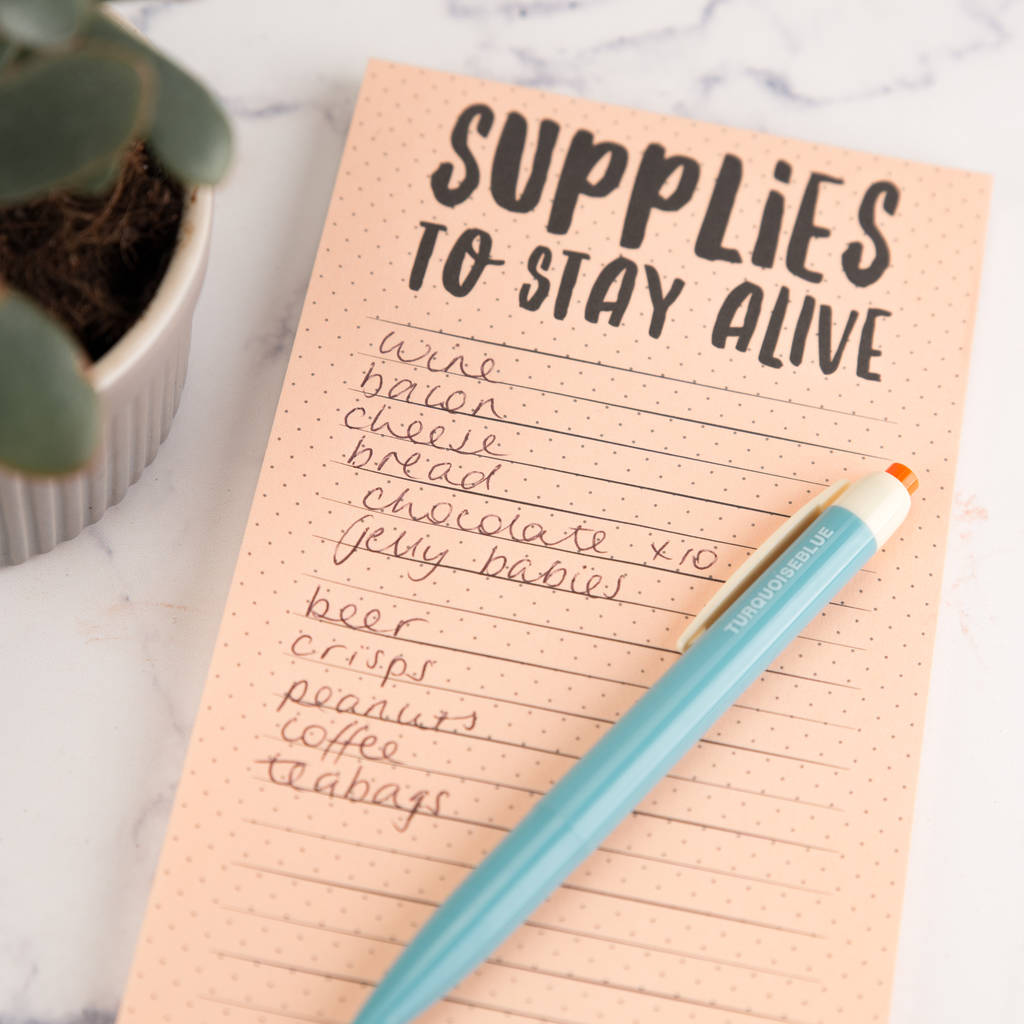 SUPPLIES
TO STAY ALIVE
wine
bacon
cheese
bread
chocolate x10
jelly babies
beer
crisps
peanuts
coffee
teabags
TURQUOISEBLUE